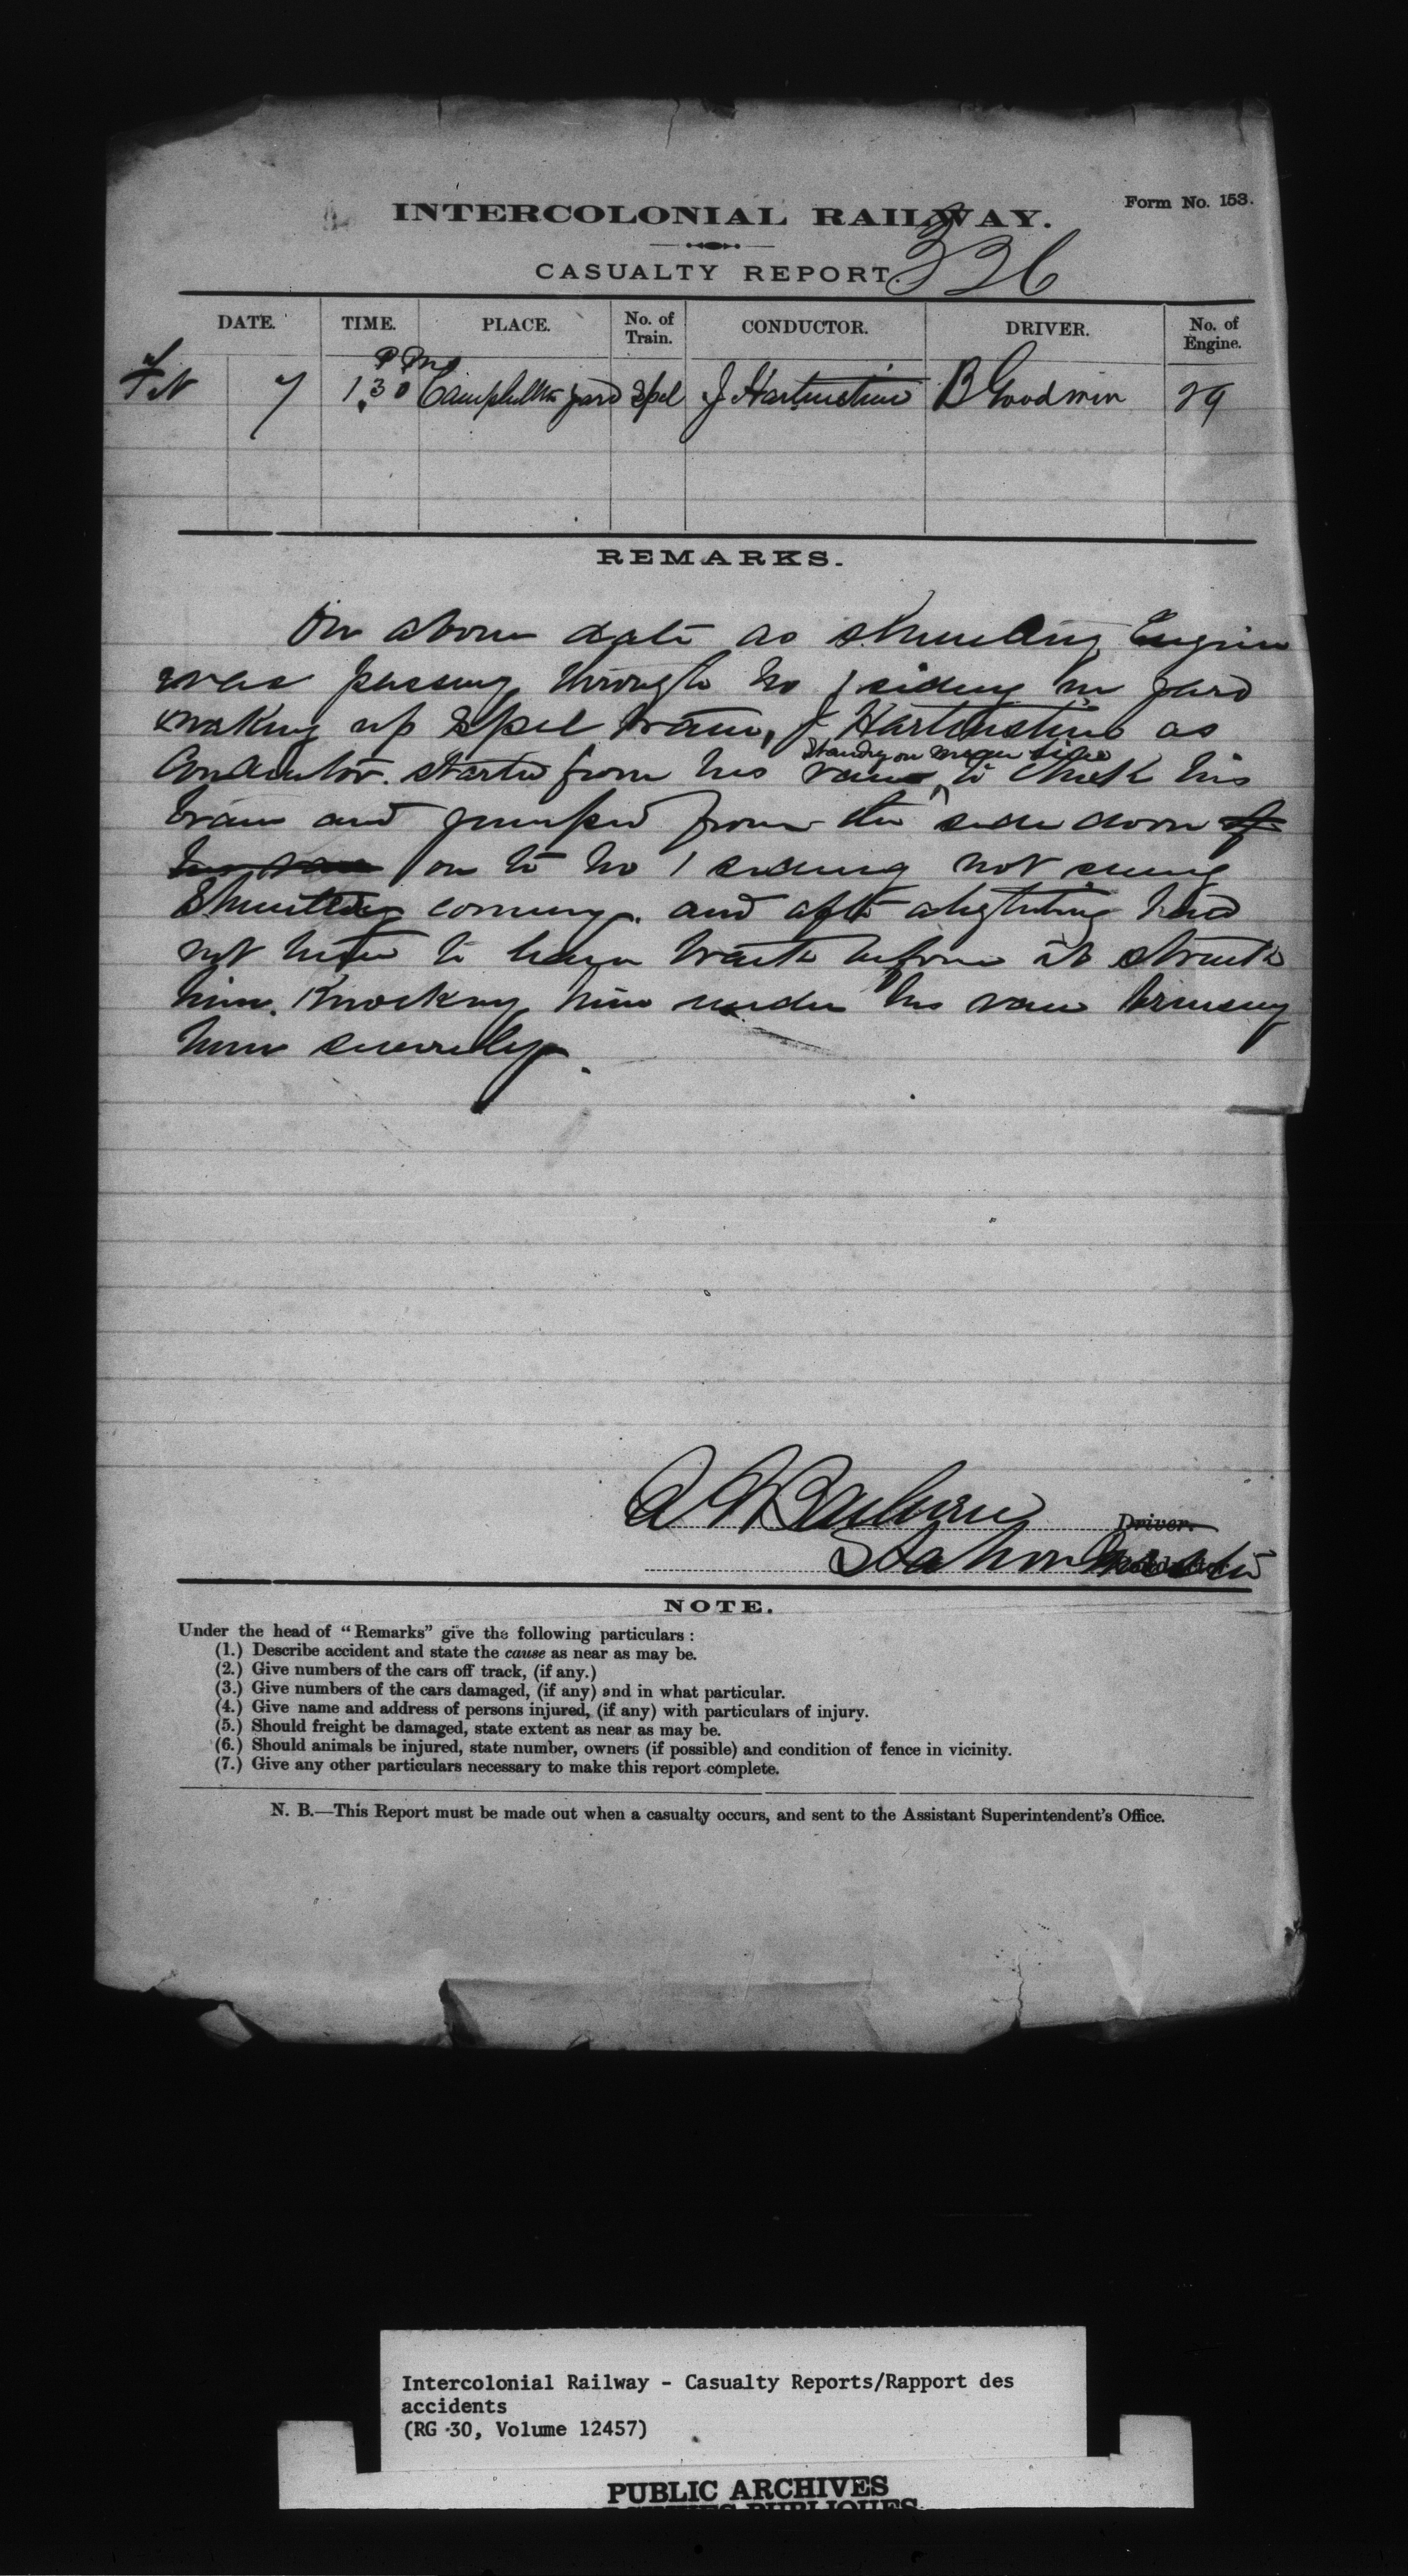 Form No. 153.
INTERCOLONIAL RAILWAY.
CASUALTY REPORT.
326
DATE. TIME. PLACE. No. of Train. CONDUCTOR. DRIVER. No. of Engine.
P Pm
7 1.30 Campbellton yard Spcl J Hartenstine B Goodwin 29
REMARKS.
On above date as shunting Engine
was passing through No 1 siding in yard
making up Spcl train, J Hartenstine as
standing on main line
Conductor. started from his van to check his
train and jumped from the side door of
his van on to No 1 siding not seeing
Shunting coming. and after alighting had
not time to leave track before it struck
him. Knocking him under his van bruising
him severely.
Driver.
Station Master
NOTE.
Under the head of "Remarks" give the following particulars :
(1.) Describe accident and state the cause as near as may be.
(2.) Give numbers of the cars off track, (if any.)
(3.) Give numbers of the cars damaged, (if any) and in what particular.
(4.) Give name and address of persons injured, (if any) with particulars of injury.
(5.) Should freight be damaged, state extent as near as may be.
(6.) Should animals be injured, state number, owners (if possible) and condition of fence in vicinity.
(7.) Give any other particulars necessary to make this report complete.
N. B.—This Report must be made out when a casualty occurs, and sent to the Assistant Superintendent's Office.
Intercolonial Railway - Casualty Reports/Rapport des
accidents
(RG 30, Volume 12457)
PUBLIC ARCHIVES